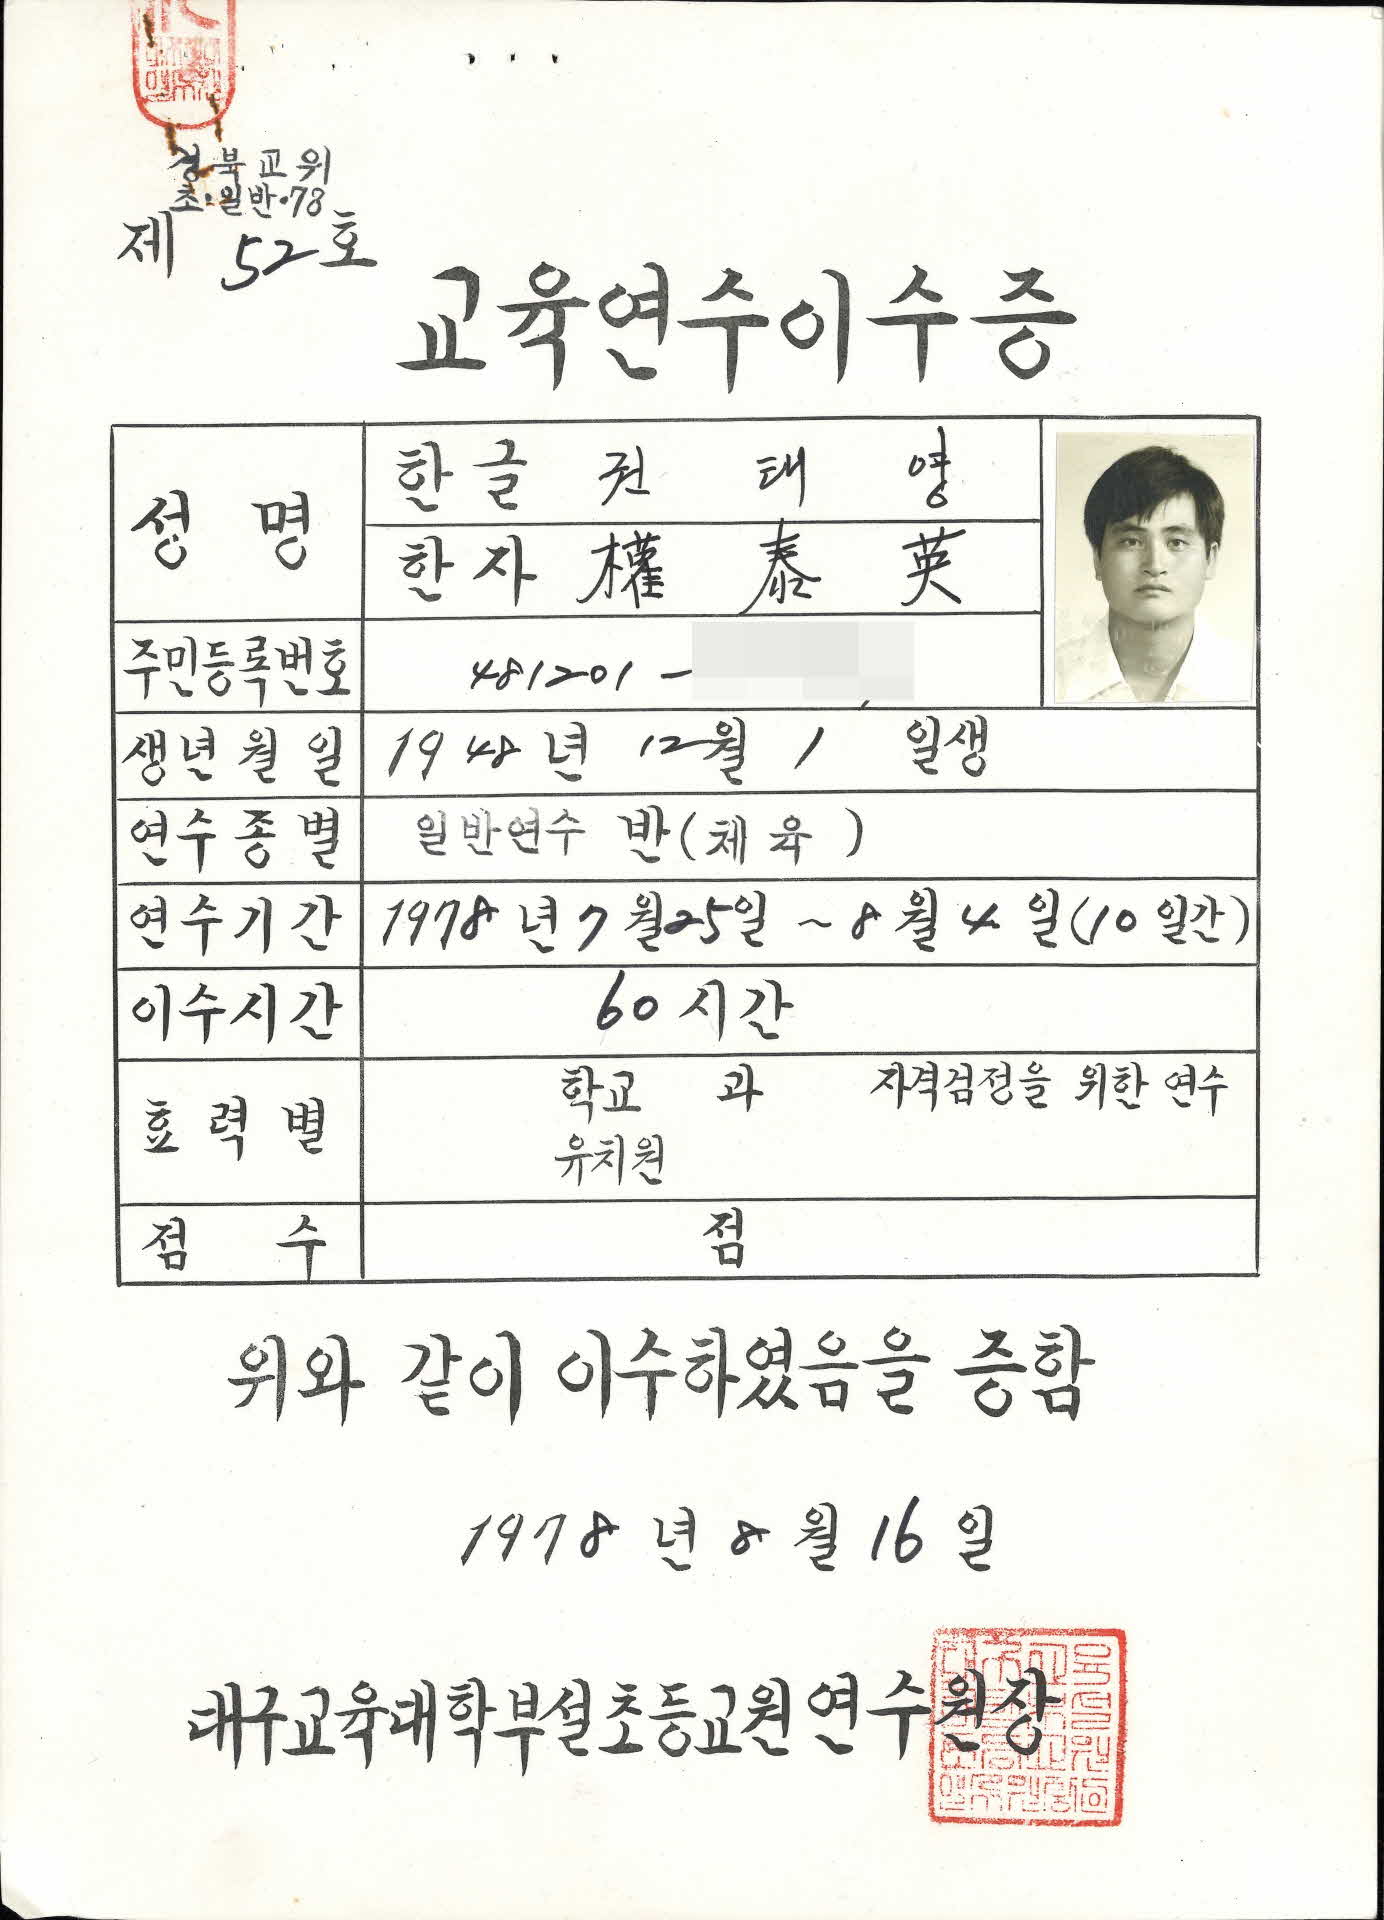 경북교위
초·일반·78
제 52호
교육연수이수증
성 명
한글 권 태 영
한자 權 泰 英
주민등록번호 481201-
생년월일 1948년 12월 1 일생
연수종별 일반연수 반(체육)
연수기간 1978년 7월 25일 ~ 8월 4일(10일간)
이수시간 60시간
효력별 학교 과 자격검정을 위한 연수
유치원
점 수 점
위와 같이 이수하였음을 증함
1978년 8월 16일
대구교육대학부설초등교원연수원장